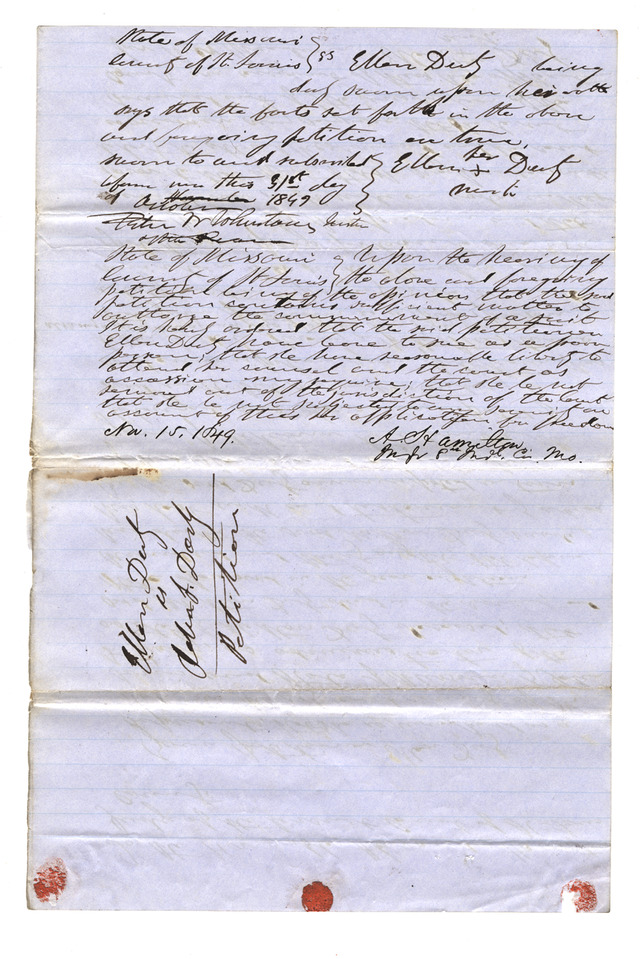 State of Missouri
County of St. Louis } ss Ellen Duty being
duly sworn upon her oath
says that the facts set forth in the above
and foregoing petition are true.
Sworn to and subscribed } Ellen her Duty
upon me this 31st day } x
of October 1849 } mark
Peter W Johnstone Justice
of the Peace
State of Missouri } Upon the hearing of
County of St. Louis } the above and foregoing
petition being of the opinion that the said
petition contains sufficient matter to
authorize the commencement of a suit
It is hereby ordered that the said petitioner
Ellen Duty have leave to sue as a poor
person; that she have reasonable liberty to
attend her counsel and the court, as
occasion may require; that she be not
removed out of the jurisdiction of the court
that she be not subjected to any severity on
account of this her application for freedom
Nov. 15. 1849.
A Hamilton
Judge 8th Judl. Ci. Mo.
Ellen Duty
vs
John F. Darby
Petition